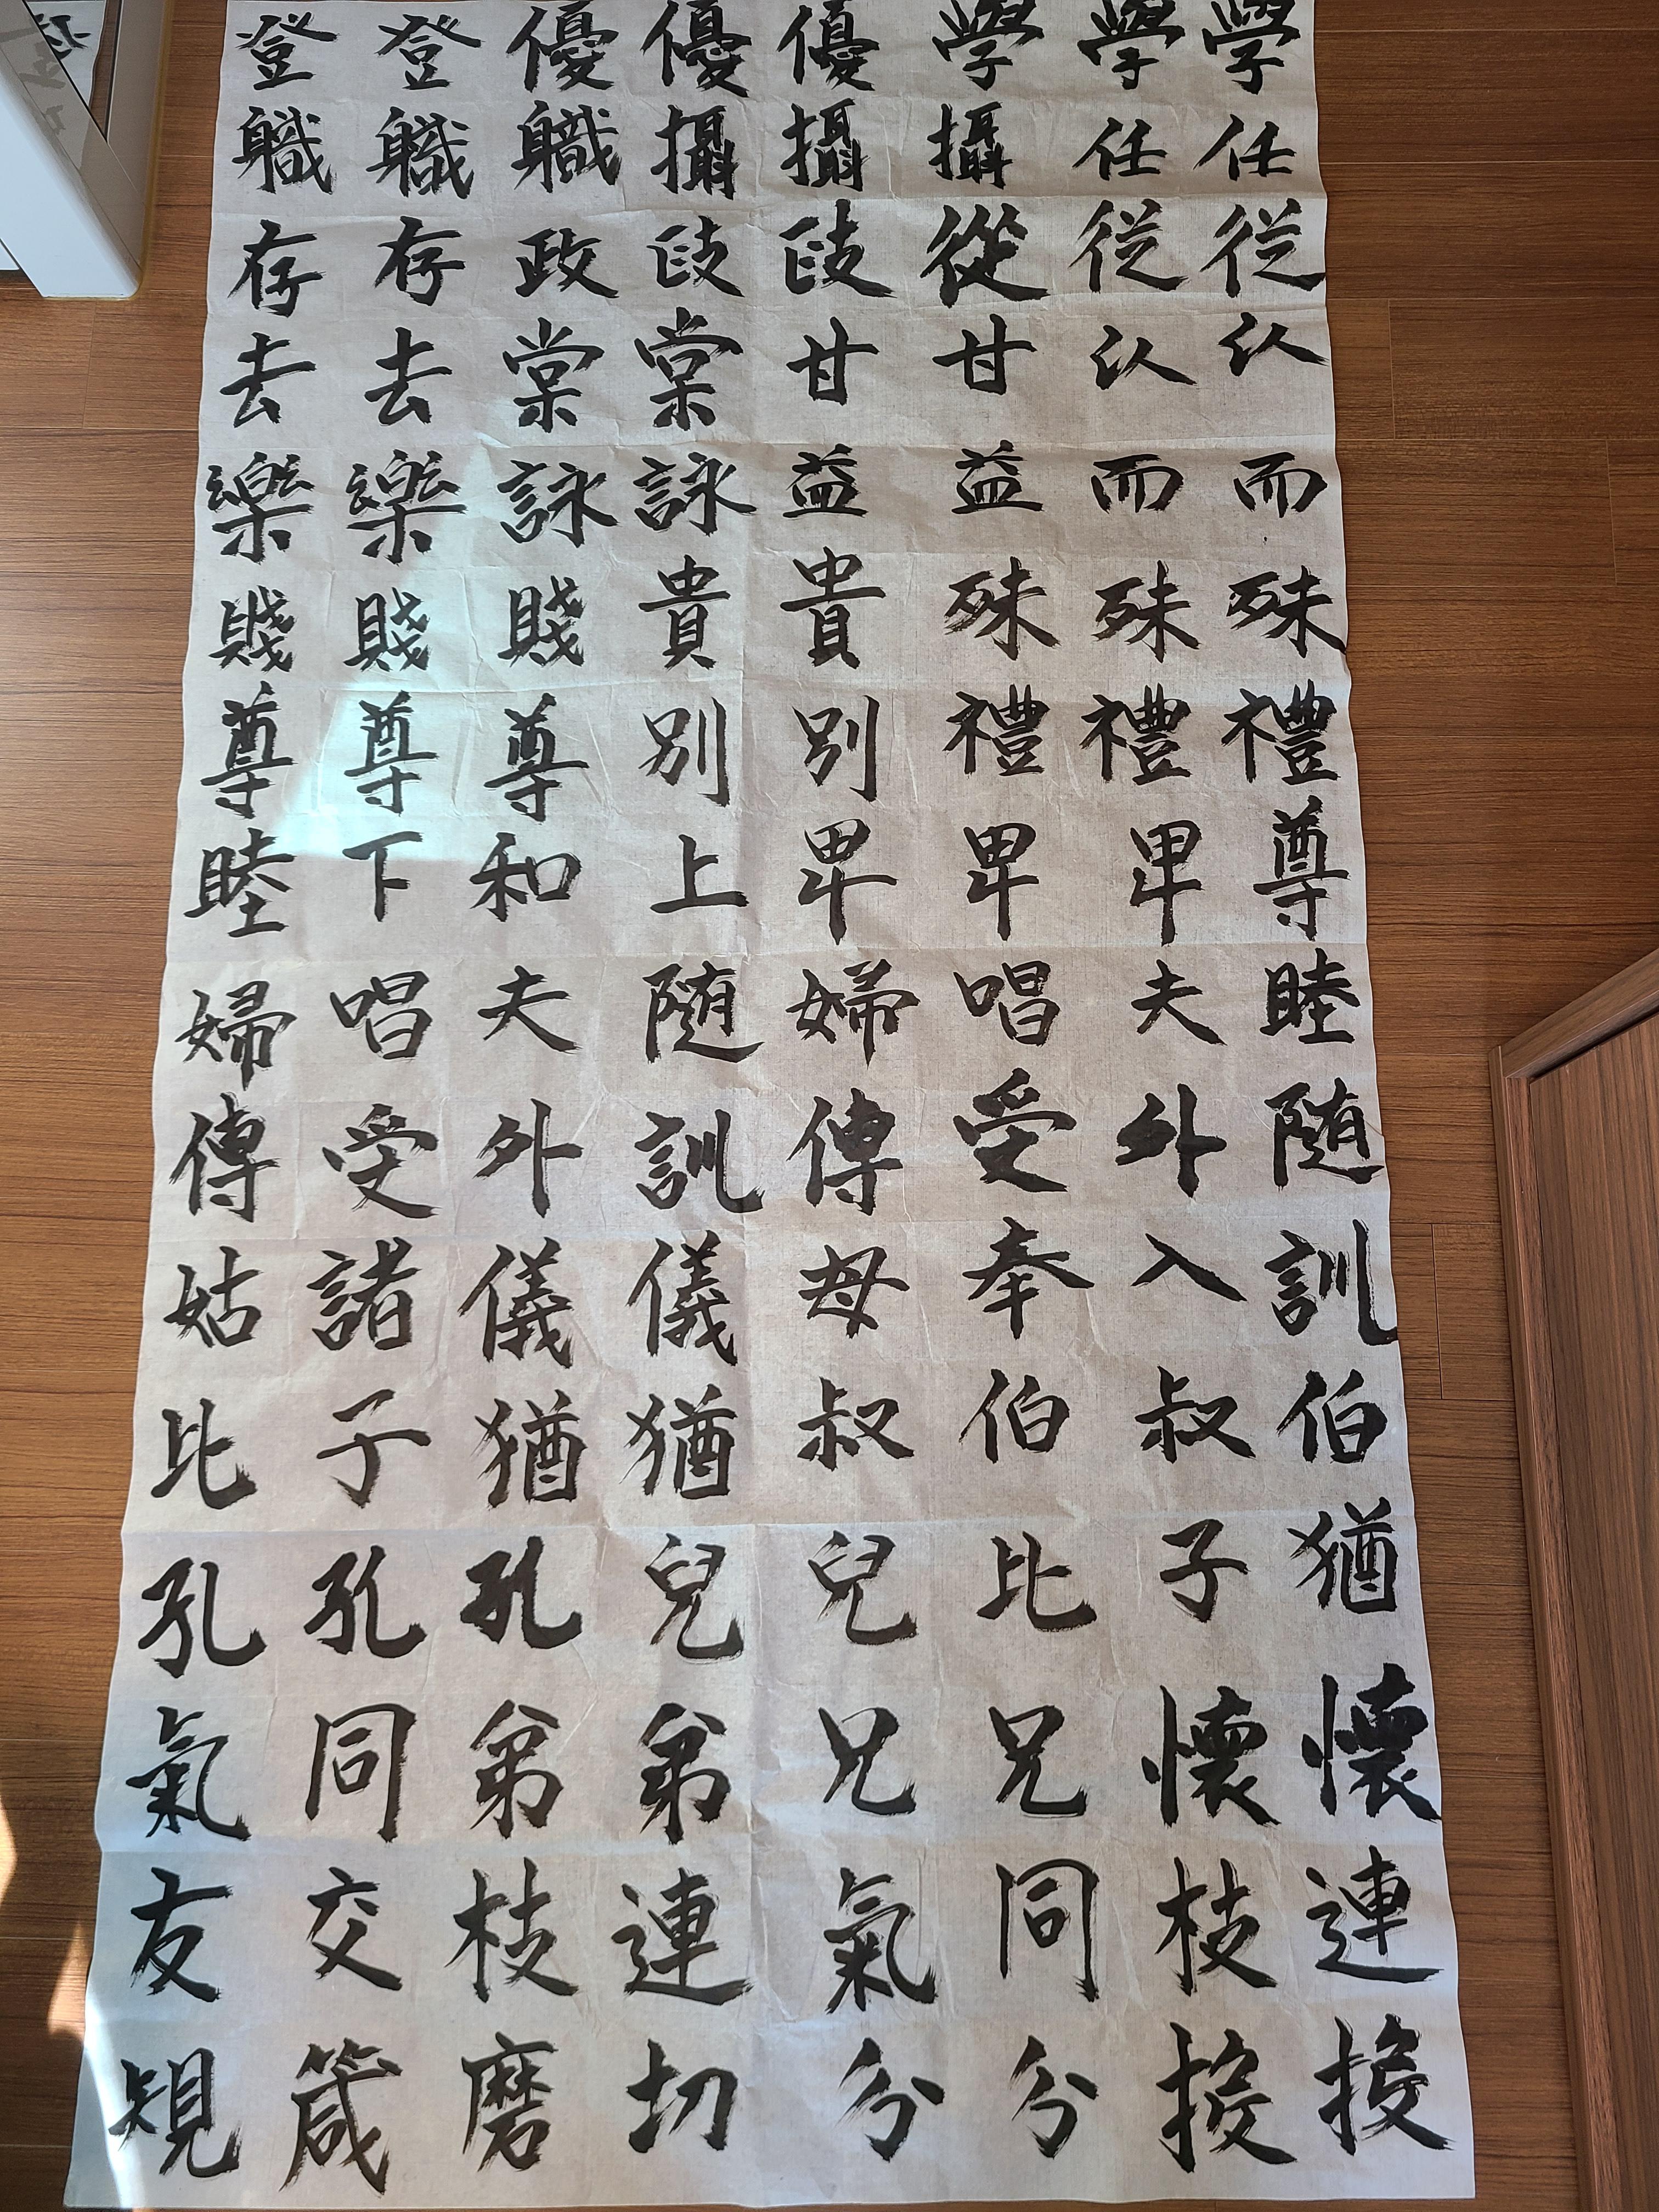 學學學優優優登登
任任攝攝攝軄軄軄
従従從政政政存存
以以甘甘棠棠去去
而而益益詠詠樂樂
殊殊殊貴貴賤賤賤
禮禮禮別別尊尊尊
尊卑卑卑上和下睦
睦夫唱婦随夫唱婦
随外受傅訓外受傅
訓入奉母儀儀諸姑
伯叔伯叔猶猶子比
猶子比兒兒孔孔孔
懷懷兄兄弟弟同氣
連枝同氣連枝交友
投投分分切磨箴規